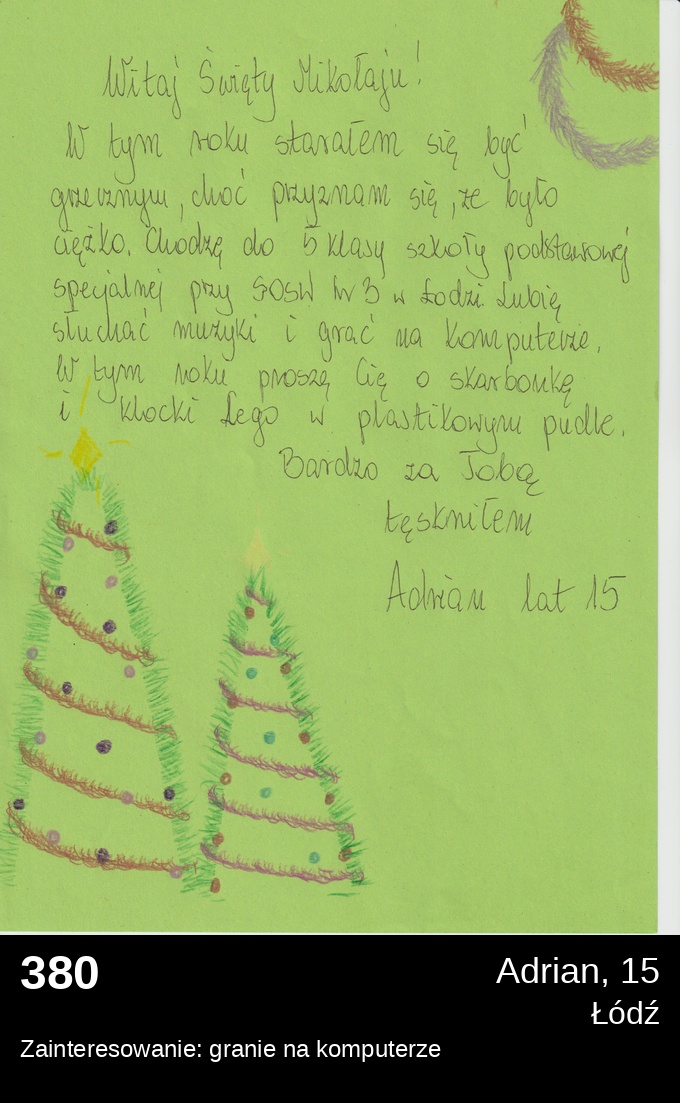 Witaj Święty Mikołaju!
W tym roku starałem się być
grzecznym, choć przyznam się, że było
ciężko. Chodzę do 5 klasy szkoły podstawowej
specjalnej przy SOSW Nr 3 w Łodzi. Lubię
słuchać muzyki i grać na komputerze.
W tym roku proszę Cię o skarbonkę
i klocki Lego w plastikowym pudle.
Bardzo za Tobą
tęskniłem
Adrian lat 15
380
Adrian, 15
Łódź
Zainteresowanie: granie na komputerze